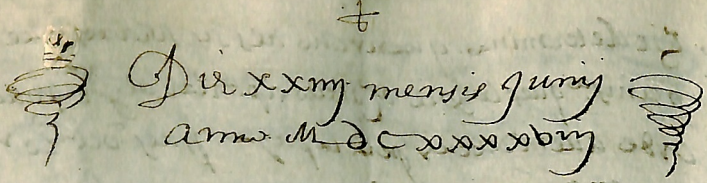 ✝
Die xxiiij mensis Junij
anno M DC xxxxviij